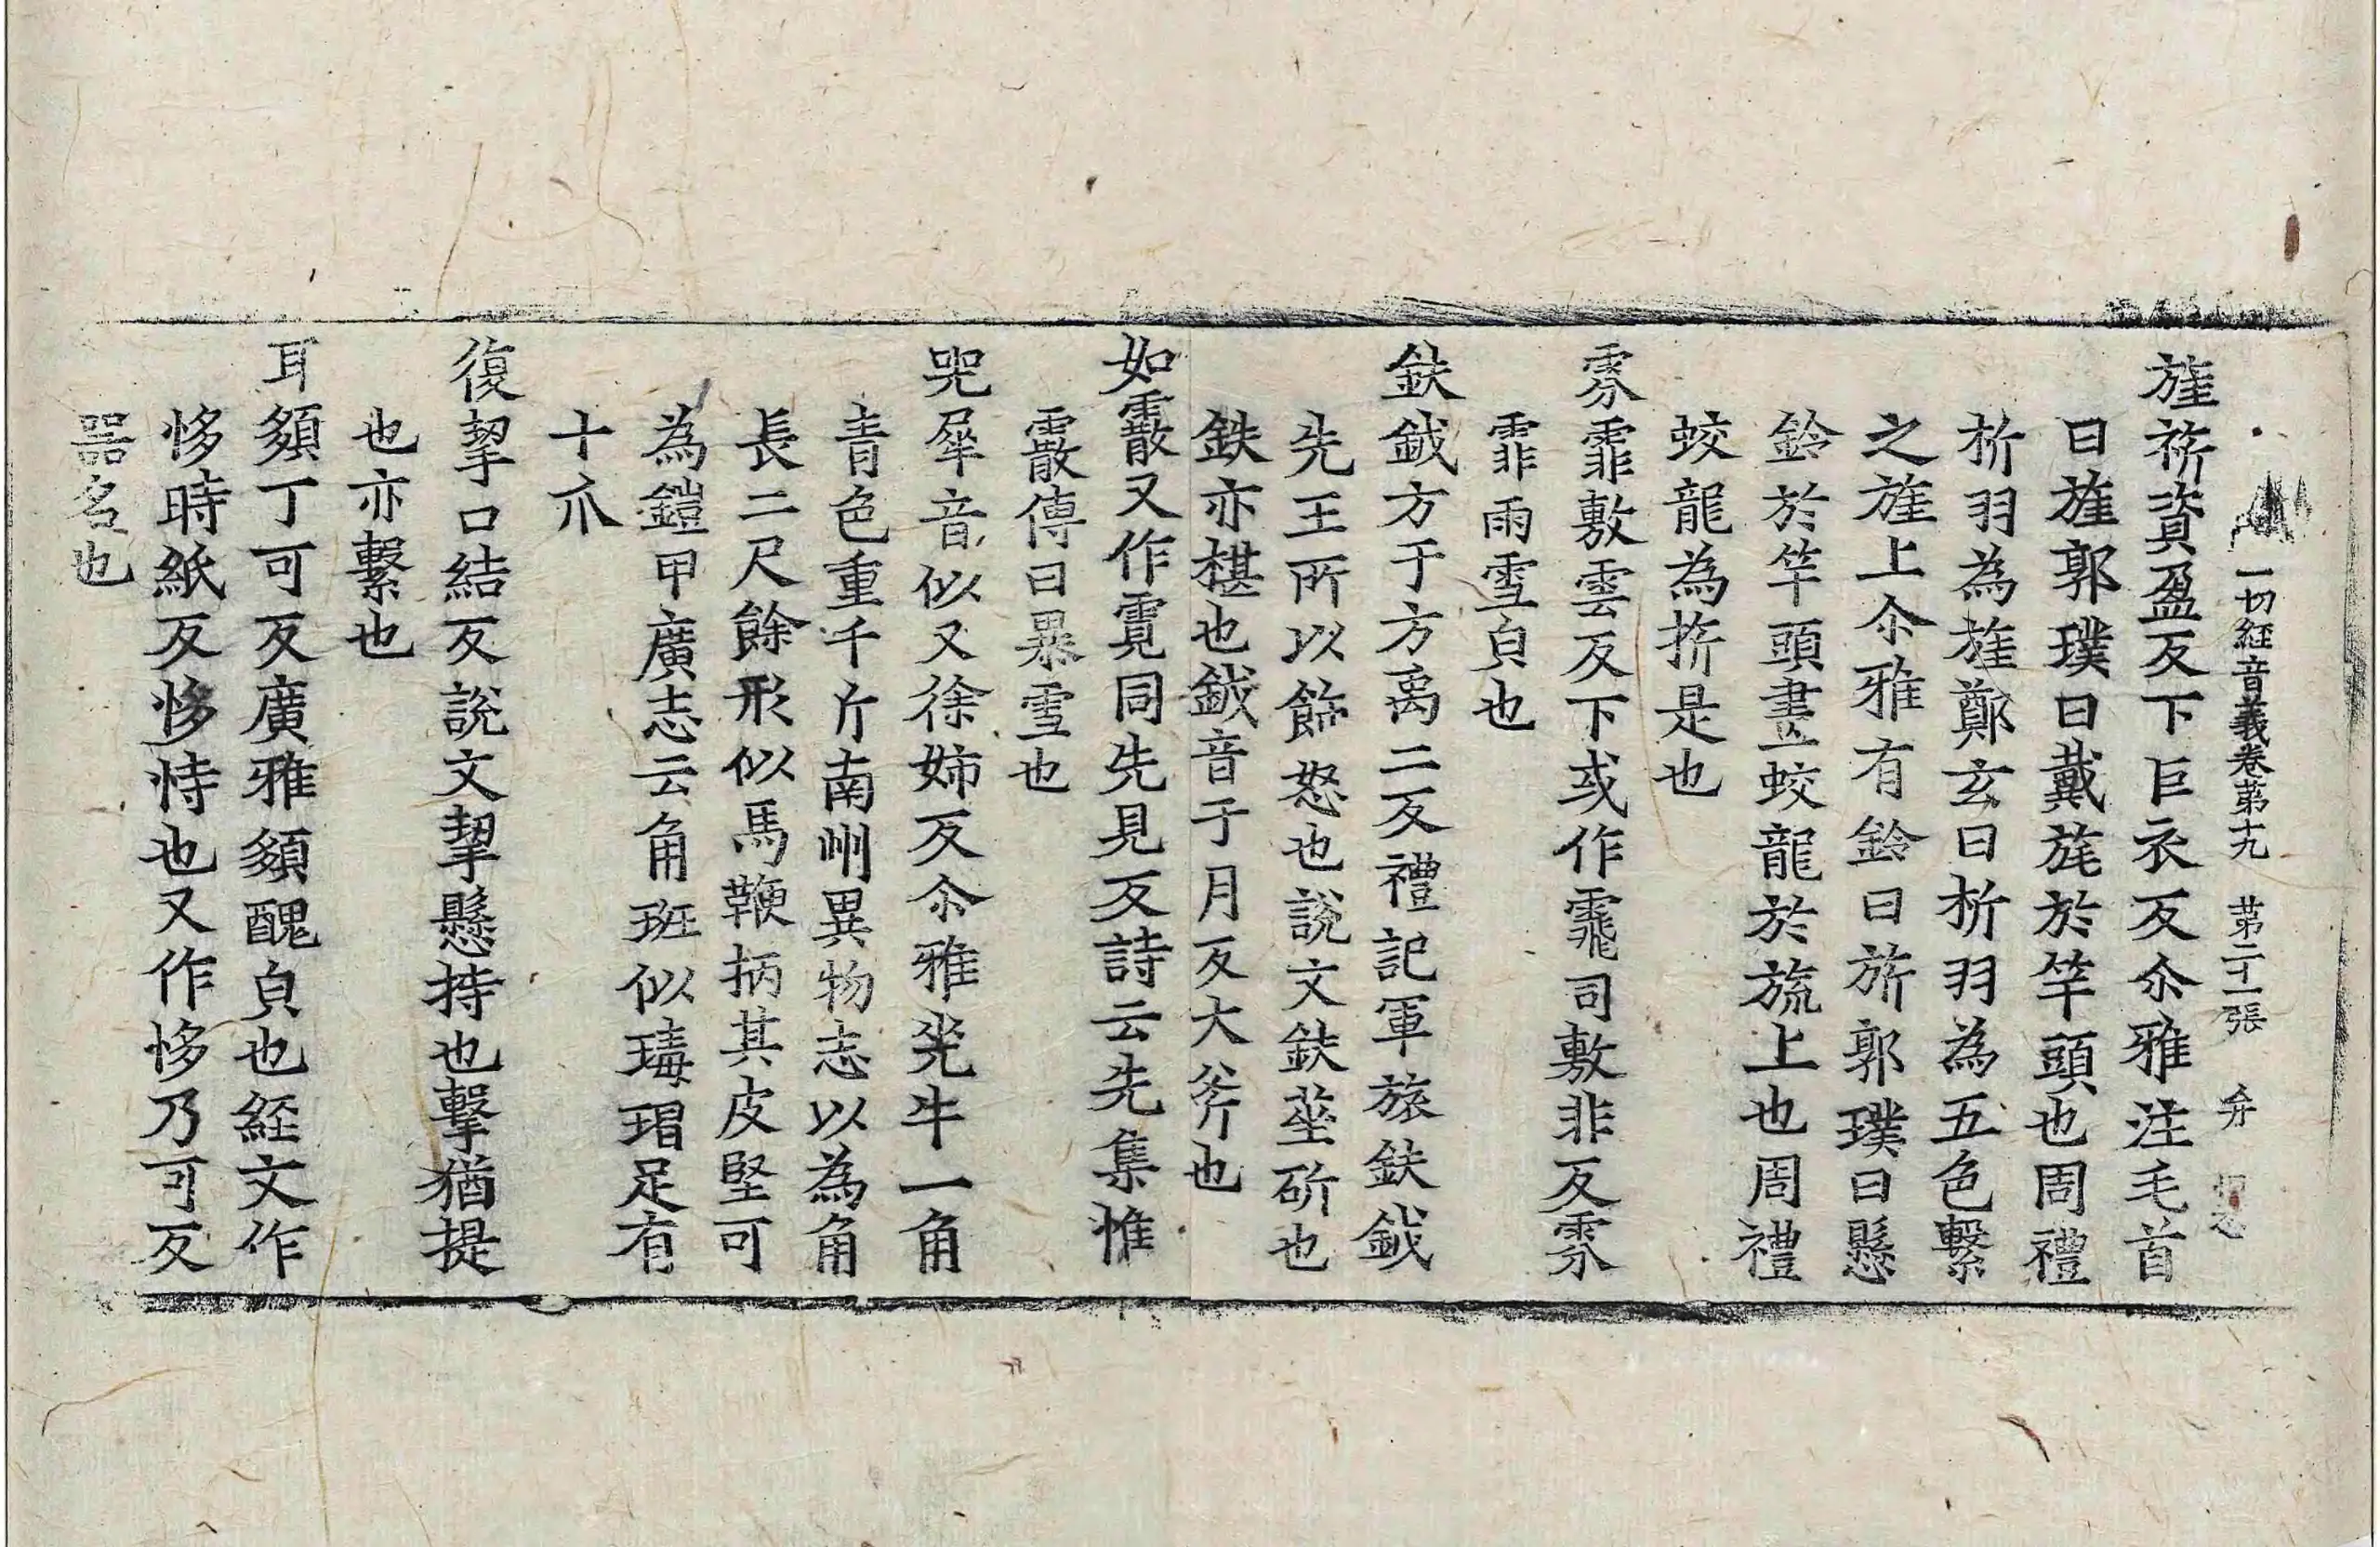 一切經音義卷第十九 第二十一張
旌旂資盈反下巨衣反尒雅注毛首
曰旌郭璞曰戴旄於竿頭也周禮
析羽為旌鄭玄曰析羽為五色繫
之旌上尒雅有鈴曰旂郭璞曰懸
鈴於竿頭畫蛟龍於旒上也周禮
蛟龍為旂是也
雰霏敷雲反下或作䬠司敷非反雰
霏雨雪皃也
鈇鉞方于方禹二反禮記軍旅鈇鉞
先王所以飾怒也說文鈇莝斫也
鈇亦椹也鉞音于月反大斧也
如霰又作霓同先見反詩云先集惟
霰傳曰暴雪也
兕犀音似又徐姊反尒雅兕牛一角
青色重千斤南州異物志以為角
長二尺餘形似馬鞭柄其皮堅可
為鎧甲廣志云角班似瑇瑁足有
十爪
復挈口結反說文挈懸持也挈猶提
也亦繫也
耳䫂丁可反廣雅䫂醜皃也經文作
恀時紙反恀恃也又作恀乃可反
器名也